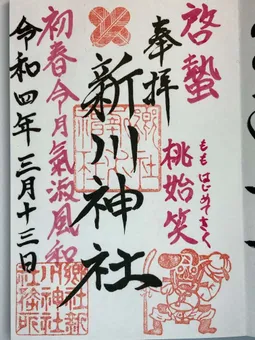 啓蟄
桃始笑
ももはじめてさく
奉拝
新川神社
初春令月氣淑風和
令和四年三月十三日